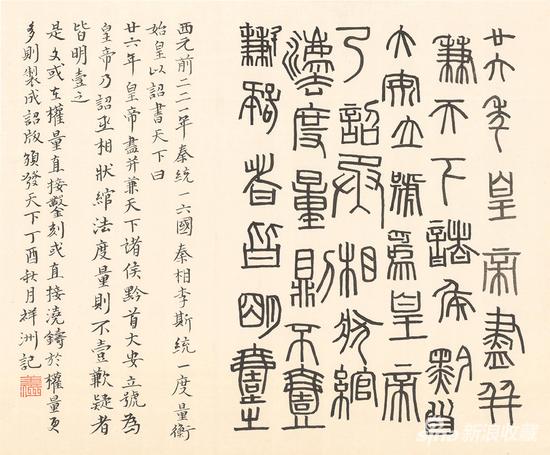 廿六年皇帝盡并
兼天下諸侯黔首
大安立號為皇帝
乃詔丞相狀綰
灋度量則不壹
歉疑者皆明壹之
西元前二二一年秦統一六國秦相李斯統一度量衡
始皇以詔書天下曰
廿六年皇帝盡并兼天下諸侯黔首大安立號為
皇帝乃詔丞相狀綰法度量則不壹歉疑者
皆明壹之
是文或在權量直接鏨刻或直接澆鑄於權量更
多則製成詔版頒發天下丁酉秋月祥洲記
sina 新浪收藏